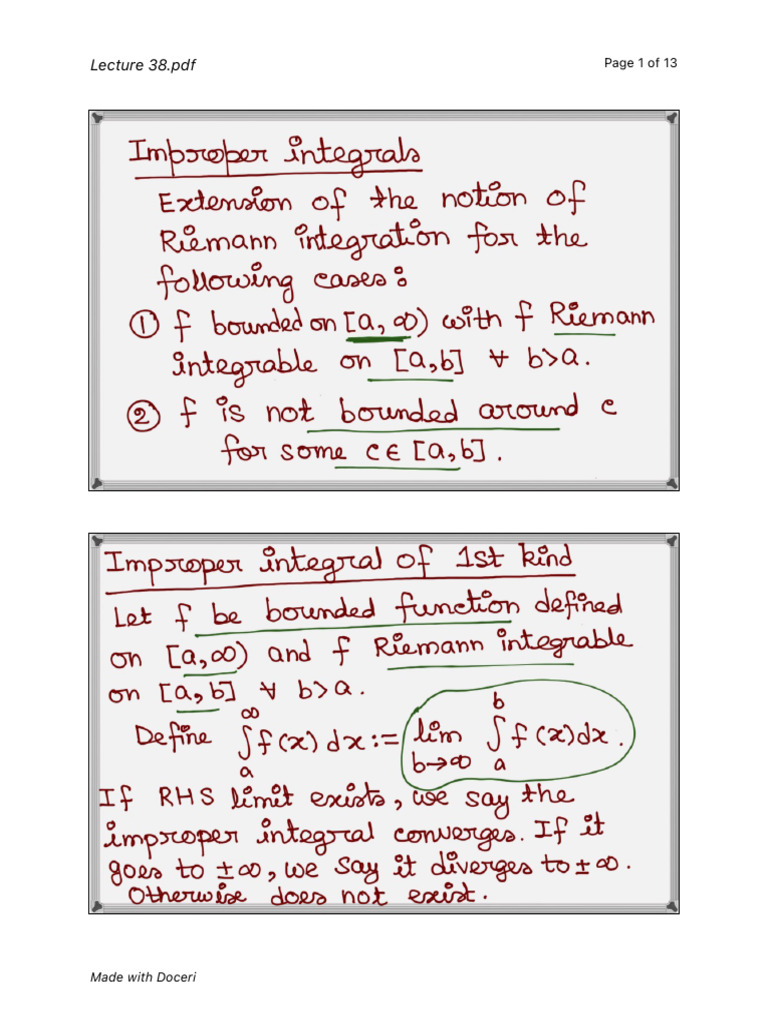 Lecture 38.pdf
Page 1 of 13
Improper integrals
Extension of the notion of
Riemann integration for the
following cases:
① f bounded on [a, ∞) with f Riemann
integrable on [a,b] ∀ b>a.
② f is not bounded around c
for some c∈[a,b].
Improper integral of 1st kind
Let f be bounded function defined
on [a,∞) and f Riemann integrable
on [a,b] ∀ b>a.
Define ∫_a^∞ f(x) dx := lim_{b→∞} ∫_a^b f(x)dx.
If RHS limit exists, we say the
improper integral converges. If it
goes to ±∞, we say it diverges to ±∞.
Otherwise does not exist.
Made with Doceri